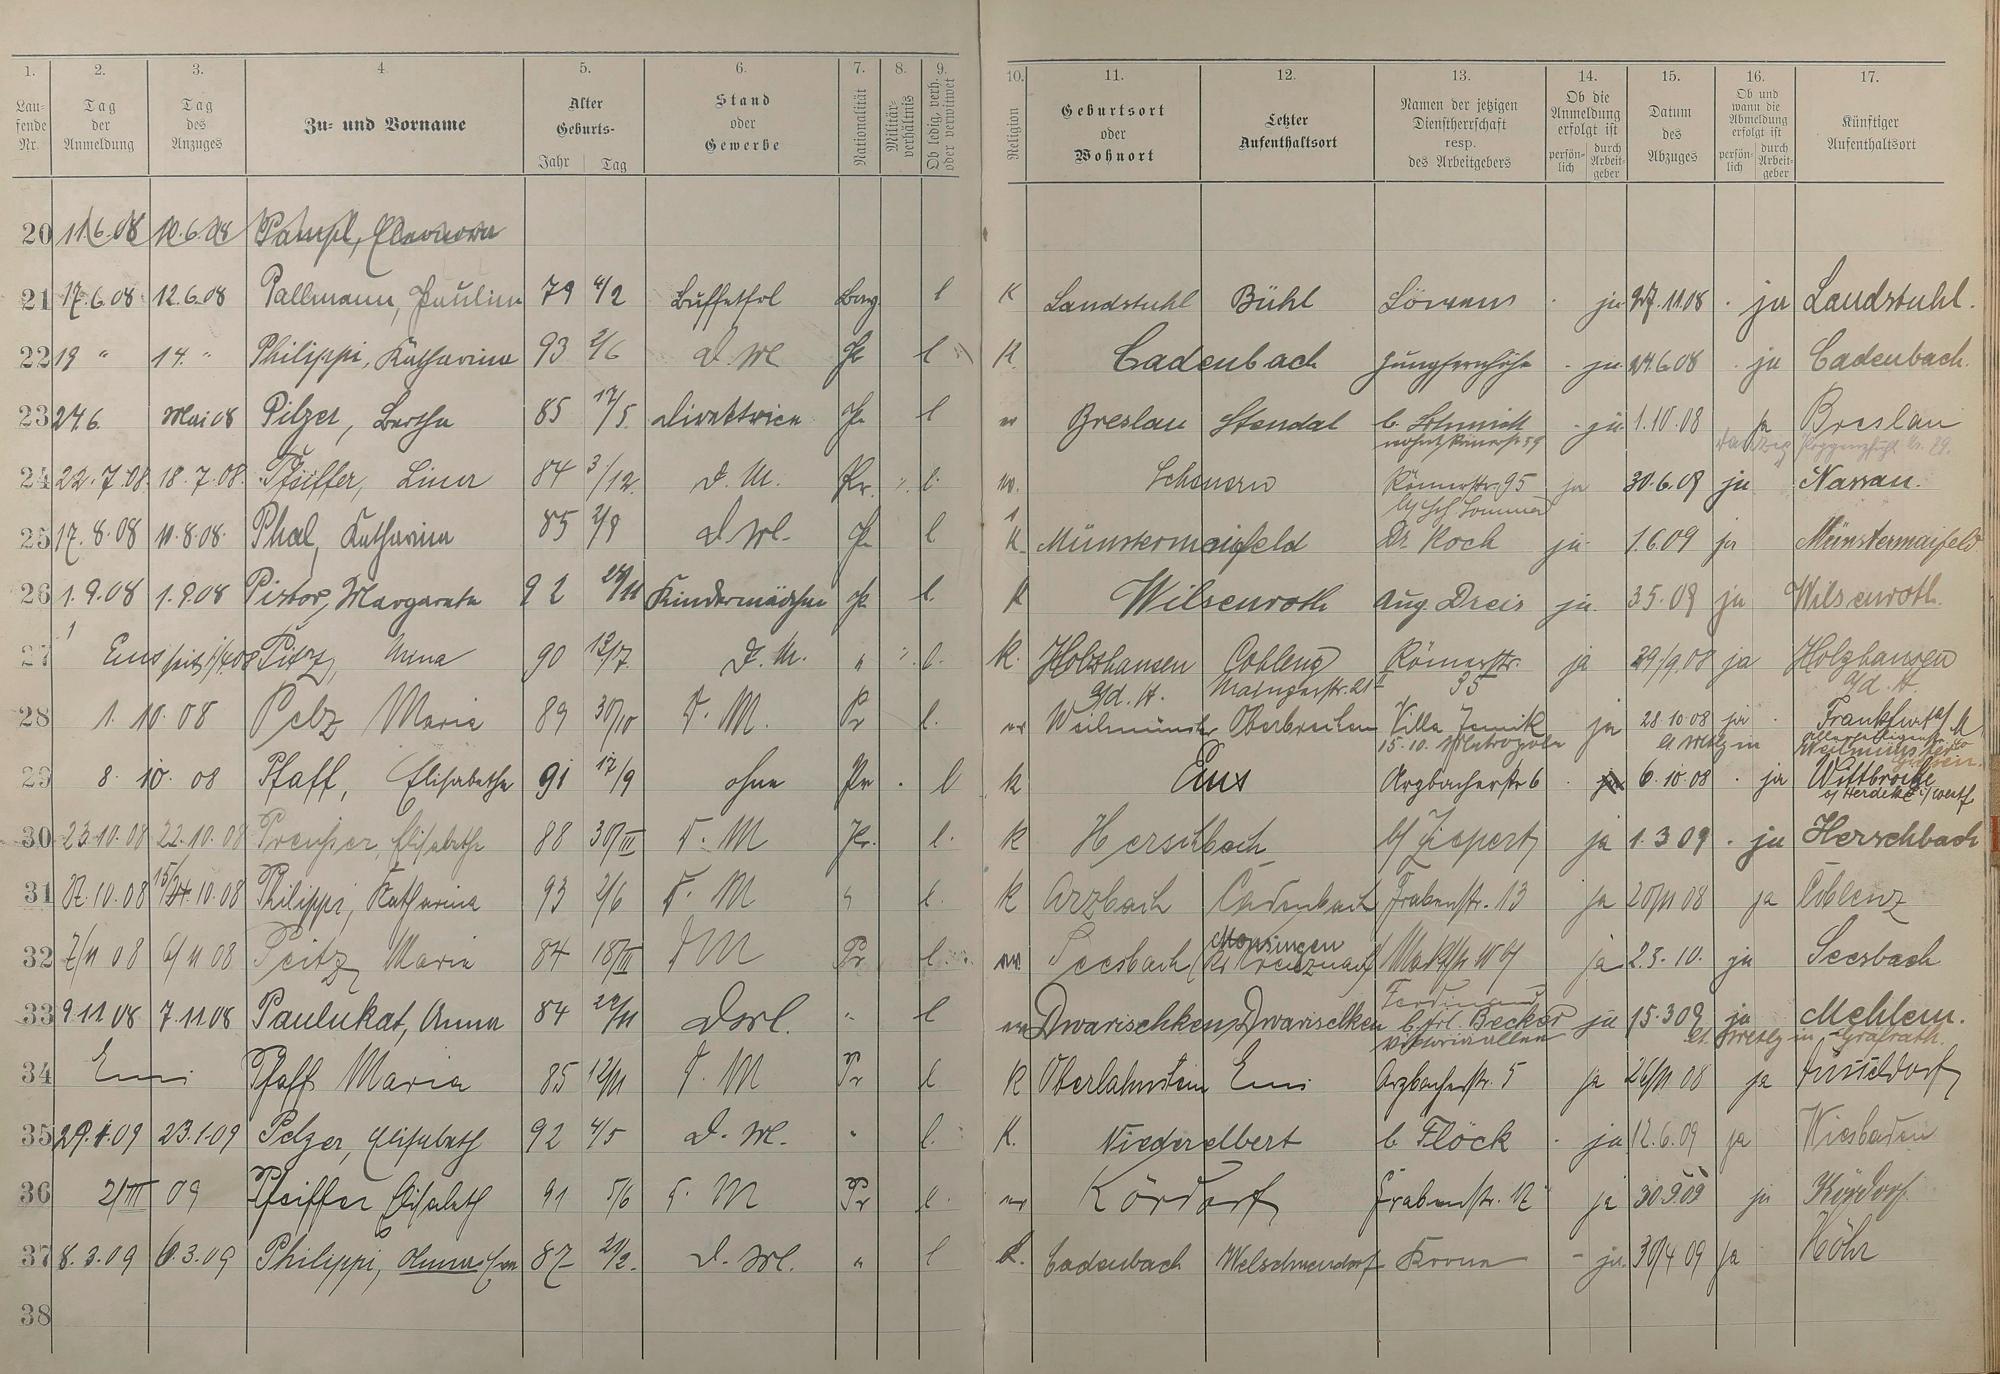 1. 2. 3. 4. 5. 6. 7. 8. 9. 10. 11. 12. 13. 14. 15. 16. 17.
Lau-
fende
Nr.
Tag
der
Anmeldung
Tag
des
Anzuges
Zu- und Vorname
Alter
Geburts-
Jahr Tag
Stand
oder
Gewerbe
Nationalität
Militär-
verhältnis
Ob ledig, verh.
oder verwitwet
Religion
Geburtsort
oder
Wohnort
Letzter
Aufenthaltsort
Namen der jetzigen
Dienstherrschaft
resp.
des Arbeitgebers
Ob die
Anmeldung
erfolgt ist
persön-
lich
durch
Arbeit-
geber
Datum
des
Abzuges
Ob und
wann die
Abmeldung
erfolgt ist
persön-
lich
durch
Arbeit-
geber
Künftiger
Aufenthaltsort
20 11.6.08 10.6.08
21 17.6.08 12.6.08 Pallmann, Pauline 79 4/2 Buffetfrl Bay. l K Landstuhl Bühl Löwen ja 27.11.08 ja Landstuhl.
22 19 " 14. " Philippi, Katharina 93 2/6 D. Ml l K. Cadenbach Jungfernhöhe ja 24.6.08 ja Cadenbach.
23 24.6. Mai 08 Pilzer, Bertha 85 17/5. Direktrice Pr l Breslau Stendal b. Schmidt ja 1.10.08 ja Breslau
24 22.7.08. 18.7.08. Pfeiffer, Lina 84 3/12. D. M. Pr. l. Scheuern Römerstr. 95 ja 30.6.09 ja Nassau.
25 17.8.08 10.8.08. Phal, Katharina 85 2/9 D. Ml. Pr l K. Münstermaifeld Dr Koch ja 1.6.09 ja Münstermaifeld
26 1.9.08 1.9.08 Pistor, Margareta 92 Kindermädchen Pr l. K Wilsenroth Aug Dreis ja 3.5.09 ja Wilsenroth.
27 Ems seit Pitz, Mina 90 12/7. D. M. " l. K. Holzhausen Coblenz Römerstr. ja 29/9.08 ja Holzhausen
a/d. H. Mainzerstr. 21 95 a/d. H.
28 1. 10. 08 Pelz Maria 89 30/10 D. M. Pr l. Weilmünster Villa ja 28.10.08 ja Frankfurt a/M
15.10. Metropole Weilmünster
29 8. 10. 08 Pfaff, Elisabetha 91 17/9 ohne Pr l k Ems Arzbacherstr 6 6.10.08 ja
30 23.10.08 22.10.08 Preusser, Elisabetha 88 30/III D. M Pr. l. k Herschbach ja 1.3.09 ja Herschbach
31 27.10.08 10.08 Philippi, Katharina 93 2/6 D. M " l. k Arzbach Cadenbach Grabenstr. 13 ja 20/11 08 ja Coblenz
32 7/11 08 6/11 08 Peitz Maria 84 18/III D M Pr l Seesbach Monzingen ja 2.3.10. ja Seesbach
33 9.11.08 7.11.08 Paulukat, Anna 84 29/11 D. Ml. " l Dwarischken Dwarischken b. Frl. Becker ja 15.3.09 ja Mehlem.
34 Ems Pfaff Maria 85 12/11 D. M Pr l k Oberlahnstein Ems Arzbacherstr. 5 ja 26/11 08 ja Düsseldorf
35 29.1.09 23.1.09 Pelzer, Elisabeth 92 4/5 D. Ml. " l. K. Niederelbert b. Flöck ja 12.6.09 ja Wiesbaden
36 2/III 09 Pfeiffer Elisabeth 91 5/6 D. M Pr l. Kördorf Grabenstr. 12 ja 30.9.09 ja Kördorf
37 8.3.09 6.3.09 Philippi, Anna 87 21/2. D. Ml. " l k. Cadenbach Welschneudorf Krone ja 30/4 09 ja Höhr
38